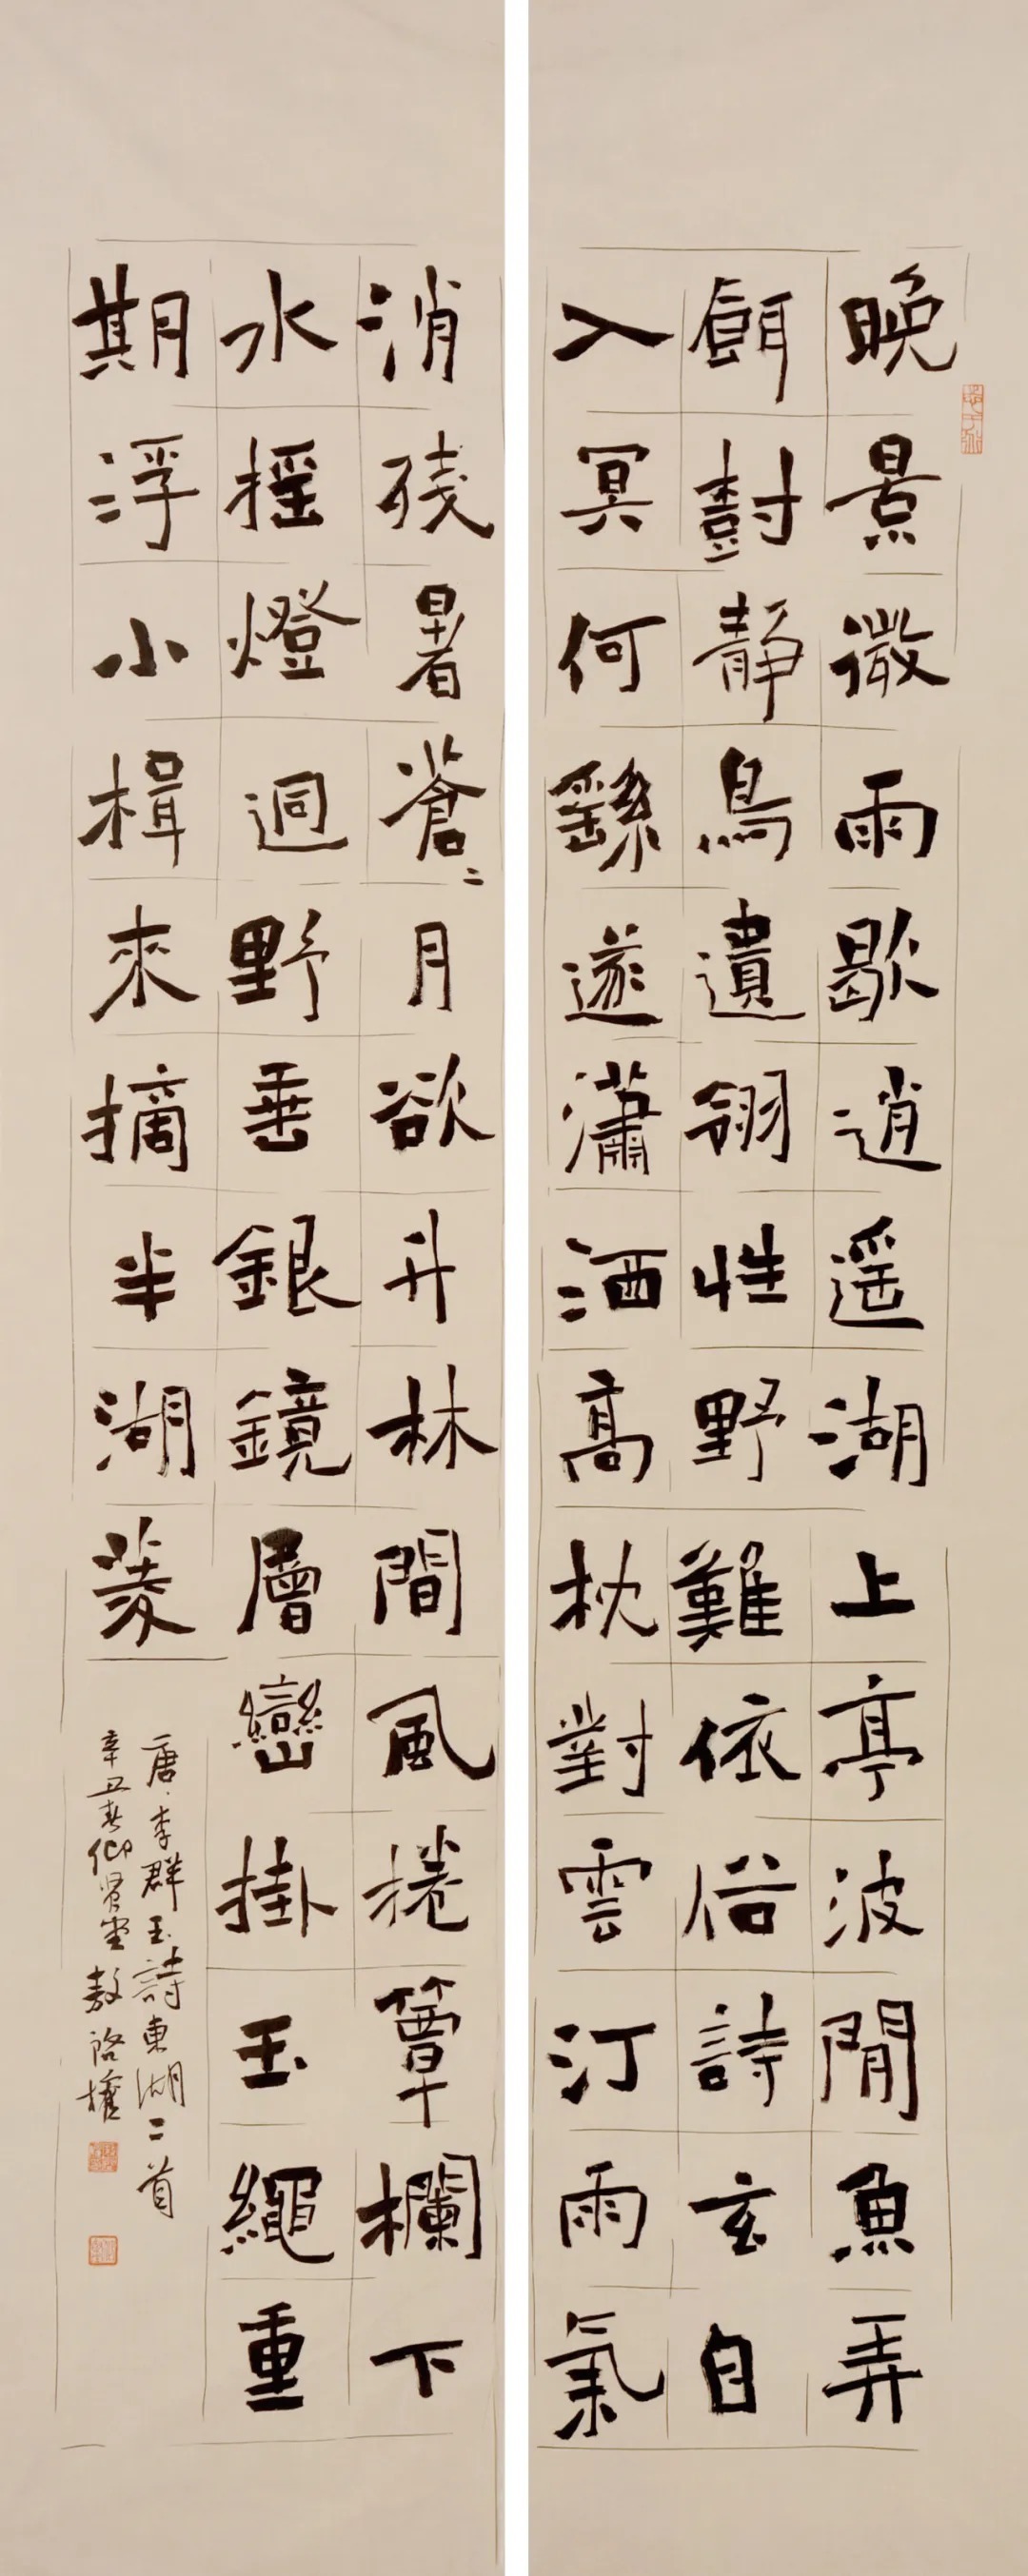 晚景微雨歇逍遥湖上亭波閒魚弄
餌樹靜鳥遺翎性野難依俗詩玄自
入冥何繇遂瀟洒高枕對雲汀雨氣
消殘暑蒼〻月欲升林間風捲簟欄下
水摇燈迥野垂銀鏡層巒掛玉繩重
期浮小楫來摘半湖菱
唐李群玉詩東湖二首
辛丑春仰賢堂敖